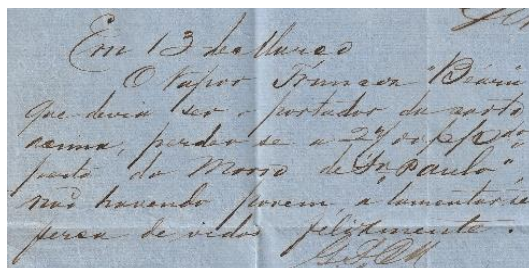 Em 13 de Março
O Vapor Francez "Béarn"
que devia ser o portador da carta
acima, perdeu se a 27 do p/p
perto do Morro de Sn. Paulo",
não havendo porem a lamentar-se
perca de vidas felizmente.